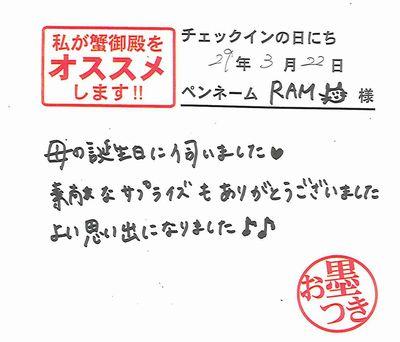 私が蟹御殿を
オススメ
します!!
チェックインの日にち
29年3月22日
ペンネーム RAM 様
母の誕生日に伺いました♥
素敵なサプライズもありがとうございました
よい思い出になりました♪♪
お墨つき